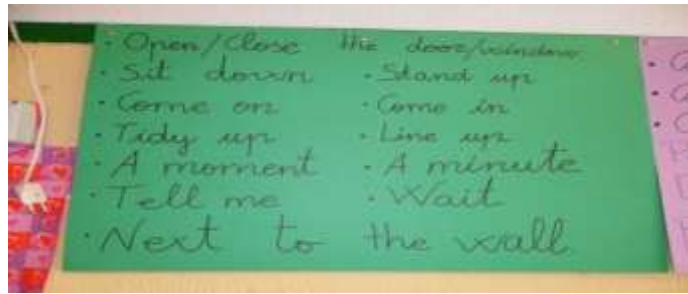 · Open/Close the door/window
· Sit down · Stand up
· Come on · Come in
· Tidy up · Line up
· A moment · A minute
· Tell me · Wait
· Next to the wall